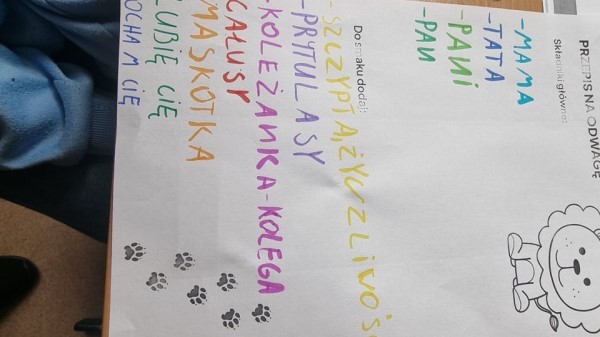 PRZEPIS NA ODWAGĘ
Składniki główne:
-MAMA
-TATA
-PANI
-PAN
Do smaku dodaj:
-SZCZYPTA, ŻYCZLIWOŚ
-PRYTULASY
-KOLEŻANKA-KOLEGA
CAŁUSY
MASKOTKA
LUBIĘ CIĘ
OCHAM CIĘ